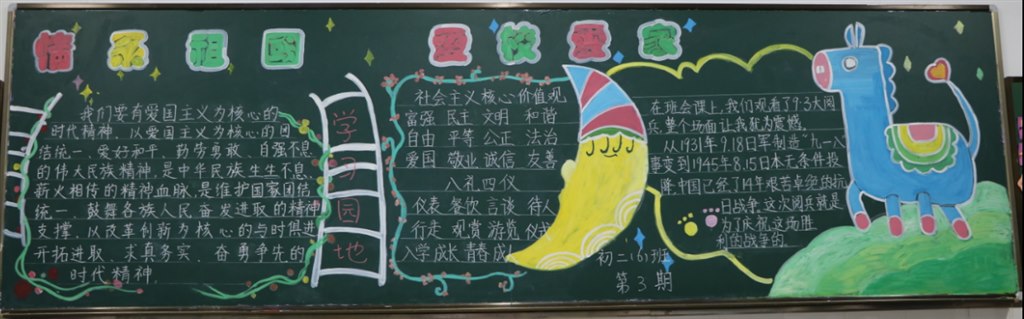 情系祖国
爱校爱家
我们要有爱国主义为核心的
时代精神、以爱国主义为核心的团
结统一、爱好和平、勤劳勇敢、自强不息
的伟大民族精神,是中华民族生生不息、
薪火相传的精神血脉,是维护国家团结
统一、鼓舞各族人民奋发进取的精神
支撑,以改革创新为核心的与时俱进、
开拓进取、求真务实、奋勇争先的
时代精神.
学
习
园
地
社会主义核心价值观
富强 民主 文明 和谐
自由 平等 公正 法治
爱国 敬业 诚信 友善
八礼四仪
仪表 餐饮 言谈 待人
行走 观赏 游览 仪式
入学 成长 青春 成
初二(6)班
第3期
在班会课上,我们观看了9·3大阅
兵,整个场面让我驱为震撼。
从1931年9.18日军制造“九一八
事变到1945年8.15日本无条件投
降,中国已经了14年艰苦卓绝的抗
日战争,这次阅兵就是
为了庆祝这场胜
利的战争的.